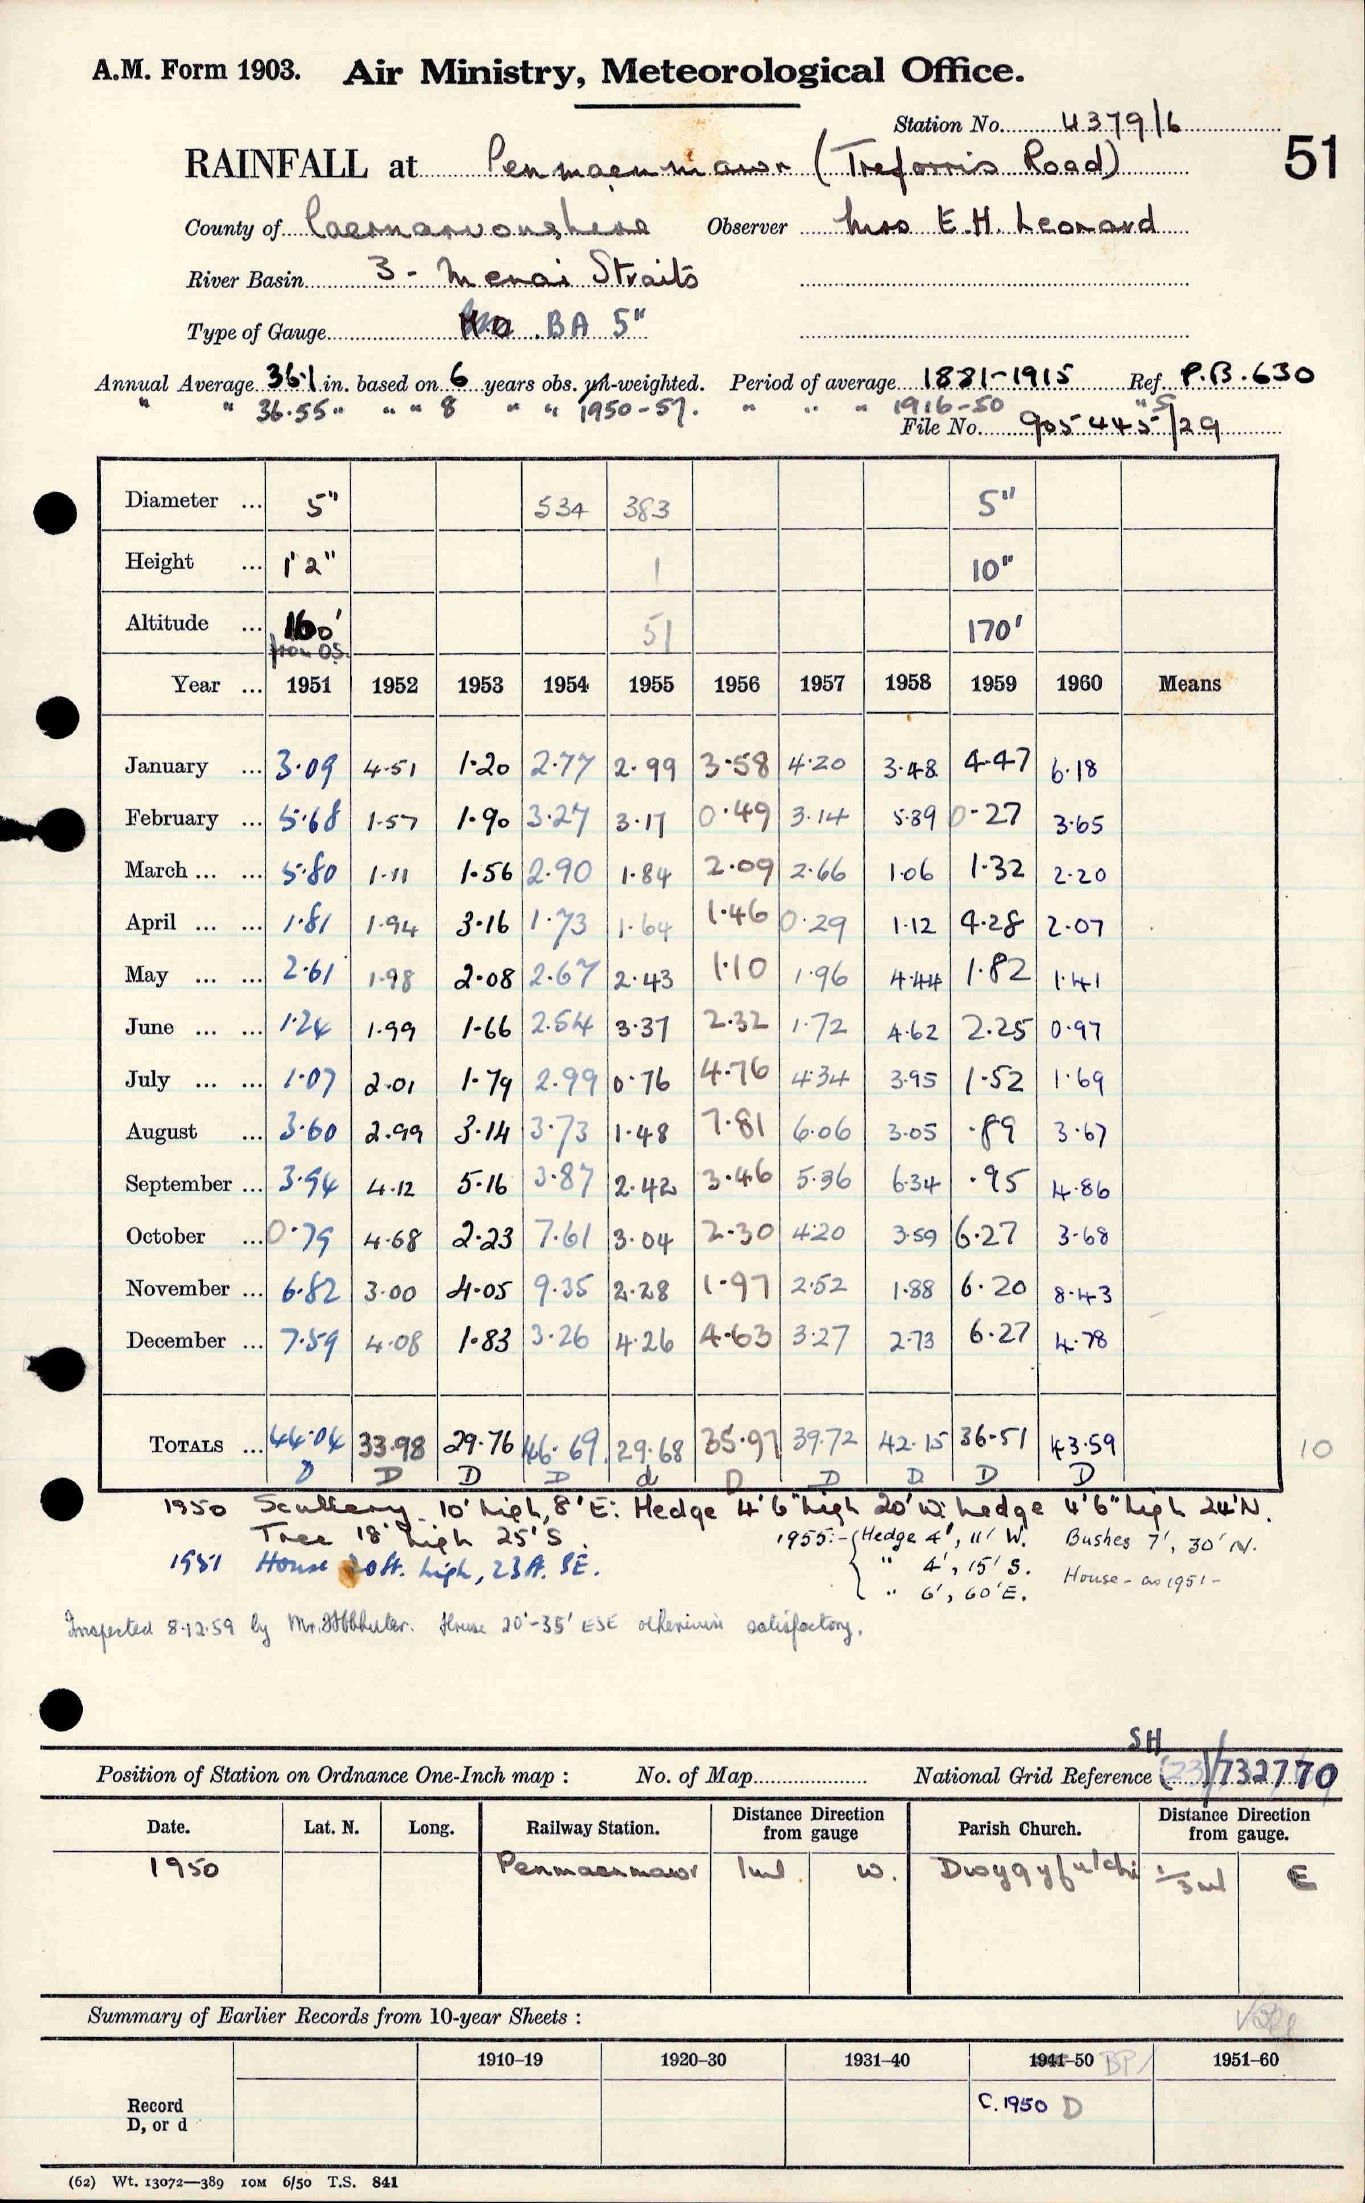 A.M. Form 1903. Air Ministry, Meteorological Office.
Station No. 4379/6
51
RAINFALL at Penmaenmawr (Treforris Road)
County of Caernarvonshire Observer Mrs E.H. Leonard
River Basin 3 - Menai Straits
Type of Gauge BA 5"
Annual Average 36.1 in. based on 6 years obs. un-weighted. Period of average 1881-1915 Ref. P.B. 630
" " 36.55" " " 8 " " 1950-57. " " " 1916-50 "
File No. 905445/29
Diameter ... 5" 534 383 5"
Height ... 1' 2" 1 10"
Altitude ... 160' 51 170'
from OS.
Year ... 1951 1952 1953 1954 1955 1956 1957 1958 1959 1960 Means
January ... 3.09 4.51 1.20 2.77 2.99 3.58 4.20 3.48 4.47 6.18
February ... 5.68 1.57 1.90 3.27 3.17 0.49 3.14 5.89 0.27 3.65
March ... ... 5.80 1.11 1.56 2.90 1.84 2.09 2.66 1.06 1.32 2.20
April ... ... 1.81 1.94 3.16 1.73 1.64 1.46 0.29 1.12 4.28 2.07
May ... ... 2.61 1.98 2.08 2.67 2.43 1.10 1.96 4.44 1.82 1.41
June ... ... 1.24 1.99 1.66 2.54 3.37 2.32 1.72 4.62 2.25 0.97
July ... ... 1.07 2.01 1.79 2.99 0.76 4.76 4.34 3.95 1.52 1.69
August ... 3.60 2.99 3.14 3.73 1.48 7.81 6.06 3.05 .89 3.67
September ... 3.94 4.12 5.16 3.87 2.42 3.46 5.36 6.34 .95 4.86
October ... 0.79 4.68 2.23 7.61 3.04 2.30 4.20 3.59 6.27 3.68
November ... 6.82 3.00 4.05 9.35 2.28 1.97 2.52 1.88 6.20 8.43
December ... 7.59 4.08 1.83 3.26 4.26 4.63 3.27 2.73 6.27 4.78
TOTALS ... 44.04 33.98 29.76 46.69 29.68 35.97 39.72 42.15 36.51 43.59 10
D D D D d D D D D D
1950 Scullery 10' high, 8' E: Hedge 4'6" high 20' W: hedge 4'6" high 24' N.
Tree 18' high 25' S.
1955:- Hedge 4', 11' W. Bushes 7', 30' N.
" 4', 15' S. House - as 1951 -
" 6', 60' E.
1951 House 20ft. high, 23ft. SE.
Inspected 8.12.59 by Mr. House 20'-35' ESE otherwise satisfactory.
SH
Position of Station on Ordnance One-Inch map : No. of Map National Grid Reference (23)/732770
Date. Lat. N. Long. Railway Station. Distance Direction from gauge Parish Church. Distance Direction from gauge.
1950 Penmaenmawr 1ml W. Dwygyfylchi 1/3 ml E
Summary of Earlier Records from 10-year Sheets :
1910–19 1920–30 1931–40 1941–50 BP 1951–60
Record
D, or d
C. 1950 D
(62) Wt. 13072—389 10M 6/50 T.S. 841